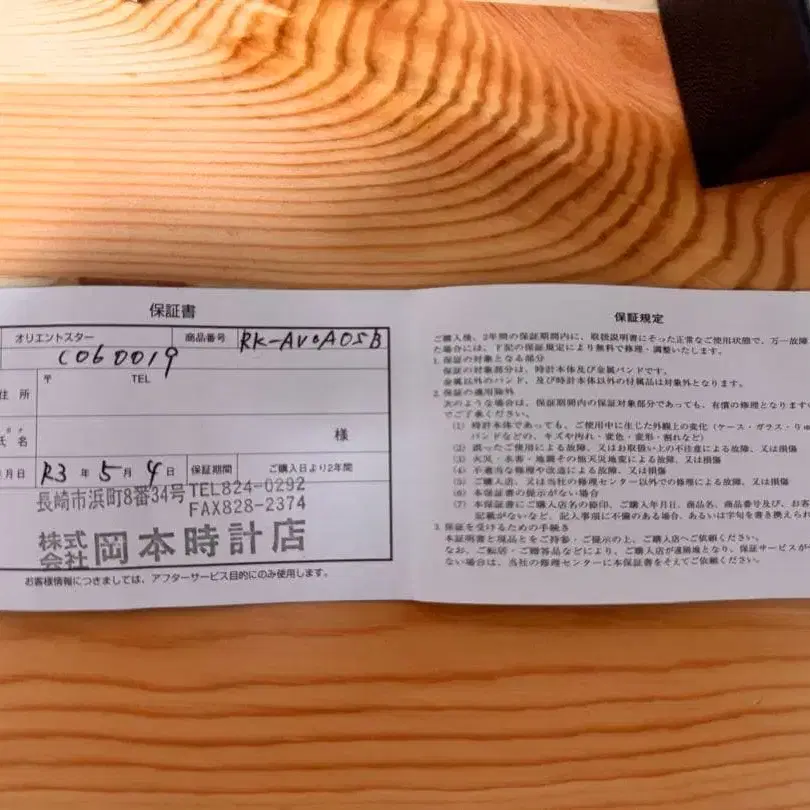 保証書
オリエントスター 商品番号 RK-AV0A05B
C060019
〒 TEL
住 所
氏 名 様
月日 R3 年 5 月 4 日 保証期間 ご購入日より2年間
長崎市浜町8番34号 TEL824-0292
FAX828-2374
株式会社 岡本時計店
お客様情報につきましては、アフターサービス目的にのみ使用します。
保証規定
ご購入後、2年間の保証期間内に、取扱説明書にそった正常なご使用状態で、万一故障
た場合には、下記の保証規定により無料で修理・調整いたします。
1. 保証の対象となる部分
保証の対象部分は、時計本体及び金属バンドです。
金属以外のバンド、及び時計本体以外の付属品は対象外となります。
2. 保証の適用除外
次のような場合は、保証期間内の保証対象部分であっても、有償の修理となります
でご了承ください。
(1) 時計本体であっても、ご使用中に生じた外観上の変化（ケース・ガラス・りゅ
バンドなどの、キズや汚れ・変色・変形・割れなど）
(2) 誤ったご使用による故障、又はお取扱い上の不注意による故障、又は損傷
(3) 火災・水害・地震その他天災地変による故障、又は損傷
(4) 不適当な修理や改造による故障、又は損傷
(5) ご購入店、又は当社の修理センター以外での修理による故障、又は損傷
(6) 本保証書の提示がない場合
(7) 本保証書にご購入店名の捺印、ご購入年月日、商品名、商品番号及び、お客
記載がないなど、記入事項に不備のある場合、あるいは字句を書き換えられ
3. 保証を受けるための手続き
本証明書と現品とをご持参・ご提示の上、ご購入店へご依頼ください。
なお、ご転居・ご贈答品などにより、ご購入店が遠隔地となり、保証サービスが
ない場合は、当社の修理センターに本保証書をそえてご依頼ください。